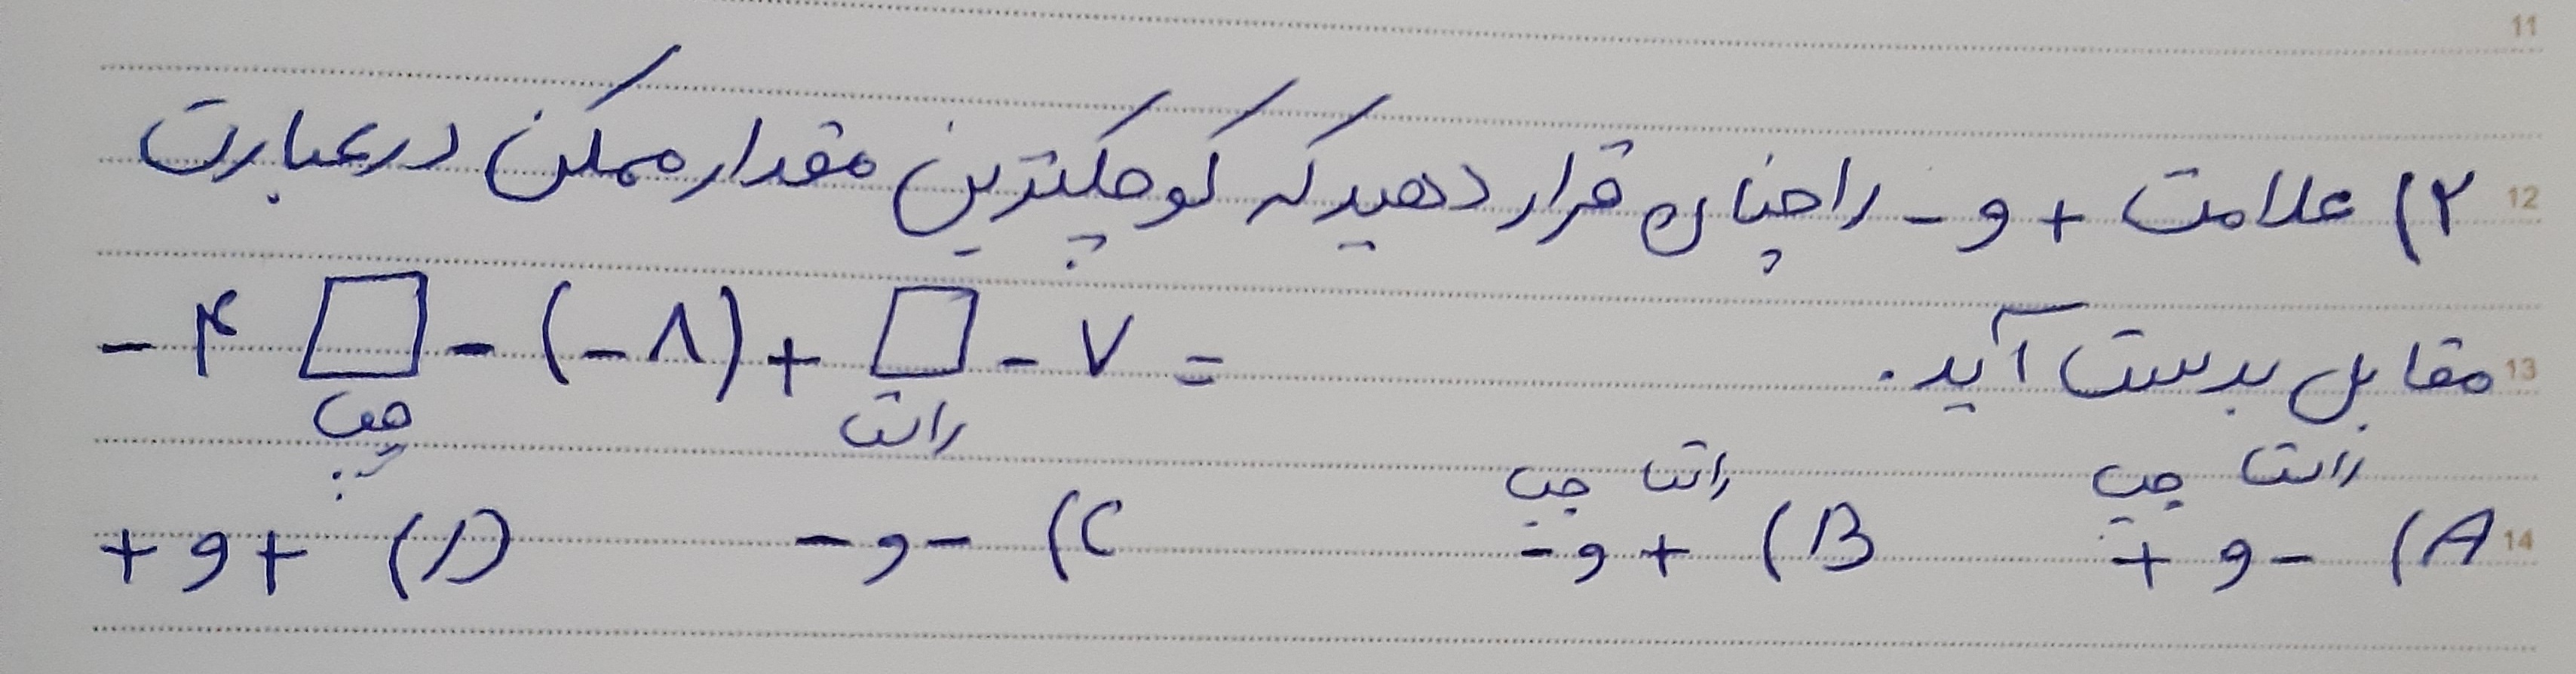 11
12 ۲) علامت + و - را چنان قرار دهید که کوچکترین مقدار ممکن در عبارت
13 مقابل بدست آید. - ۴ □ - (- ۸) + □ - ۷ =
چپ راست
راست چپ راست چپ
14 A) - و + B) + و - C) - و - D) + و +